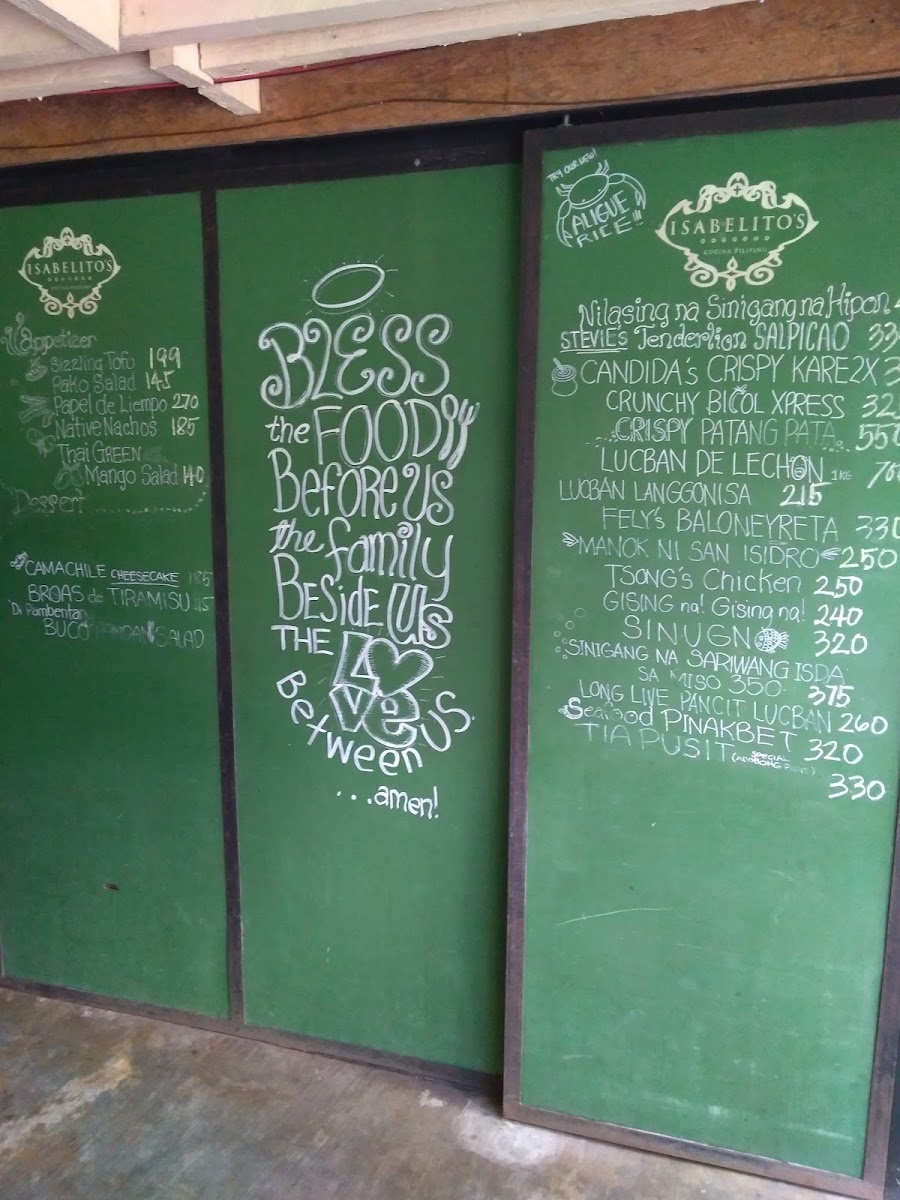 ISABELITO'S
Appetizer
Sizzling Tofu 199
Pako Salad 145
Papel de Liempo 270
Native Nachos 185
Thai GREEN
Mango Salad 140
Dessert
CAMACHILE CHEESECAKE 185
BROAS de TIRAMISU
Di Pambentang
BUCO PANDAN SALAD
BLESS
the FOOD
Before us
the family
BESide us
THE LOve
Between us
...amen!
TRY OUR NEW!
ALIGUE
RICE!!!
ISABELITO'S
COCINA FILIPINO
Nilasing na Sinigang na Hipon
STEVIE's Tenderlign SALPICAO 33
CANDIDA's CRISPY KARE2X 3
CRUNCHY BICOL XPRESS 32
CRISPY PATANG PATA 550
LUCBAN DE LECHON 1KG
LUCBAN LANGGONISA 215
FELY's BALONEYRETA 330
MANOK NI SAN ISIDRO 250
TSONG's Chicken 250
GISING na! Gising na! 240
SINUGNO 320
SINIGANG NA SARIWANG ISDA
SA MISO 350 375
LONG LIVE PANCIT LUCBAN 260
Seafood PINAKBET 320
TIA PUSIT (SPECIAL ADOBONG PUSIT)
330